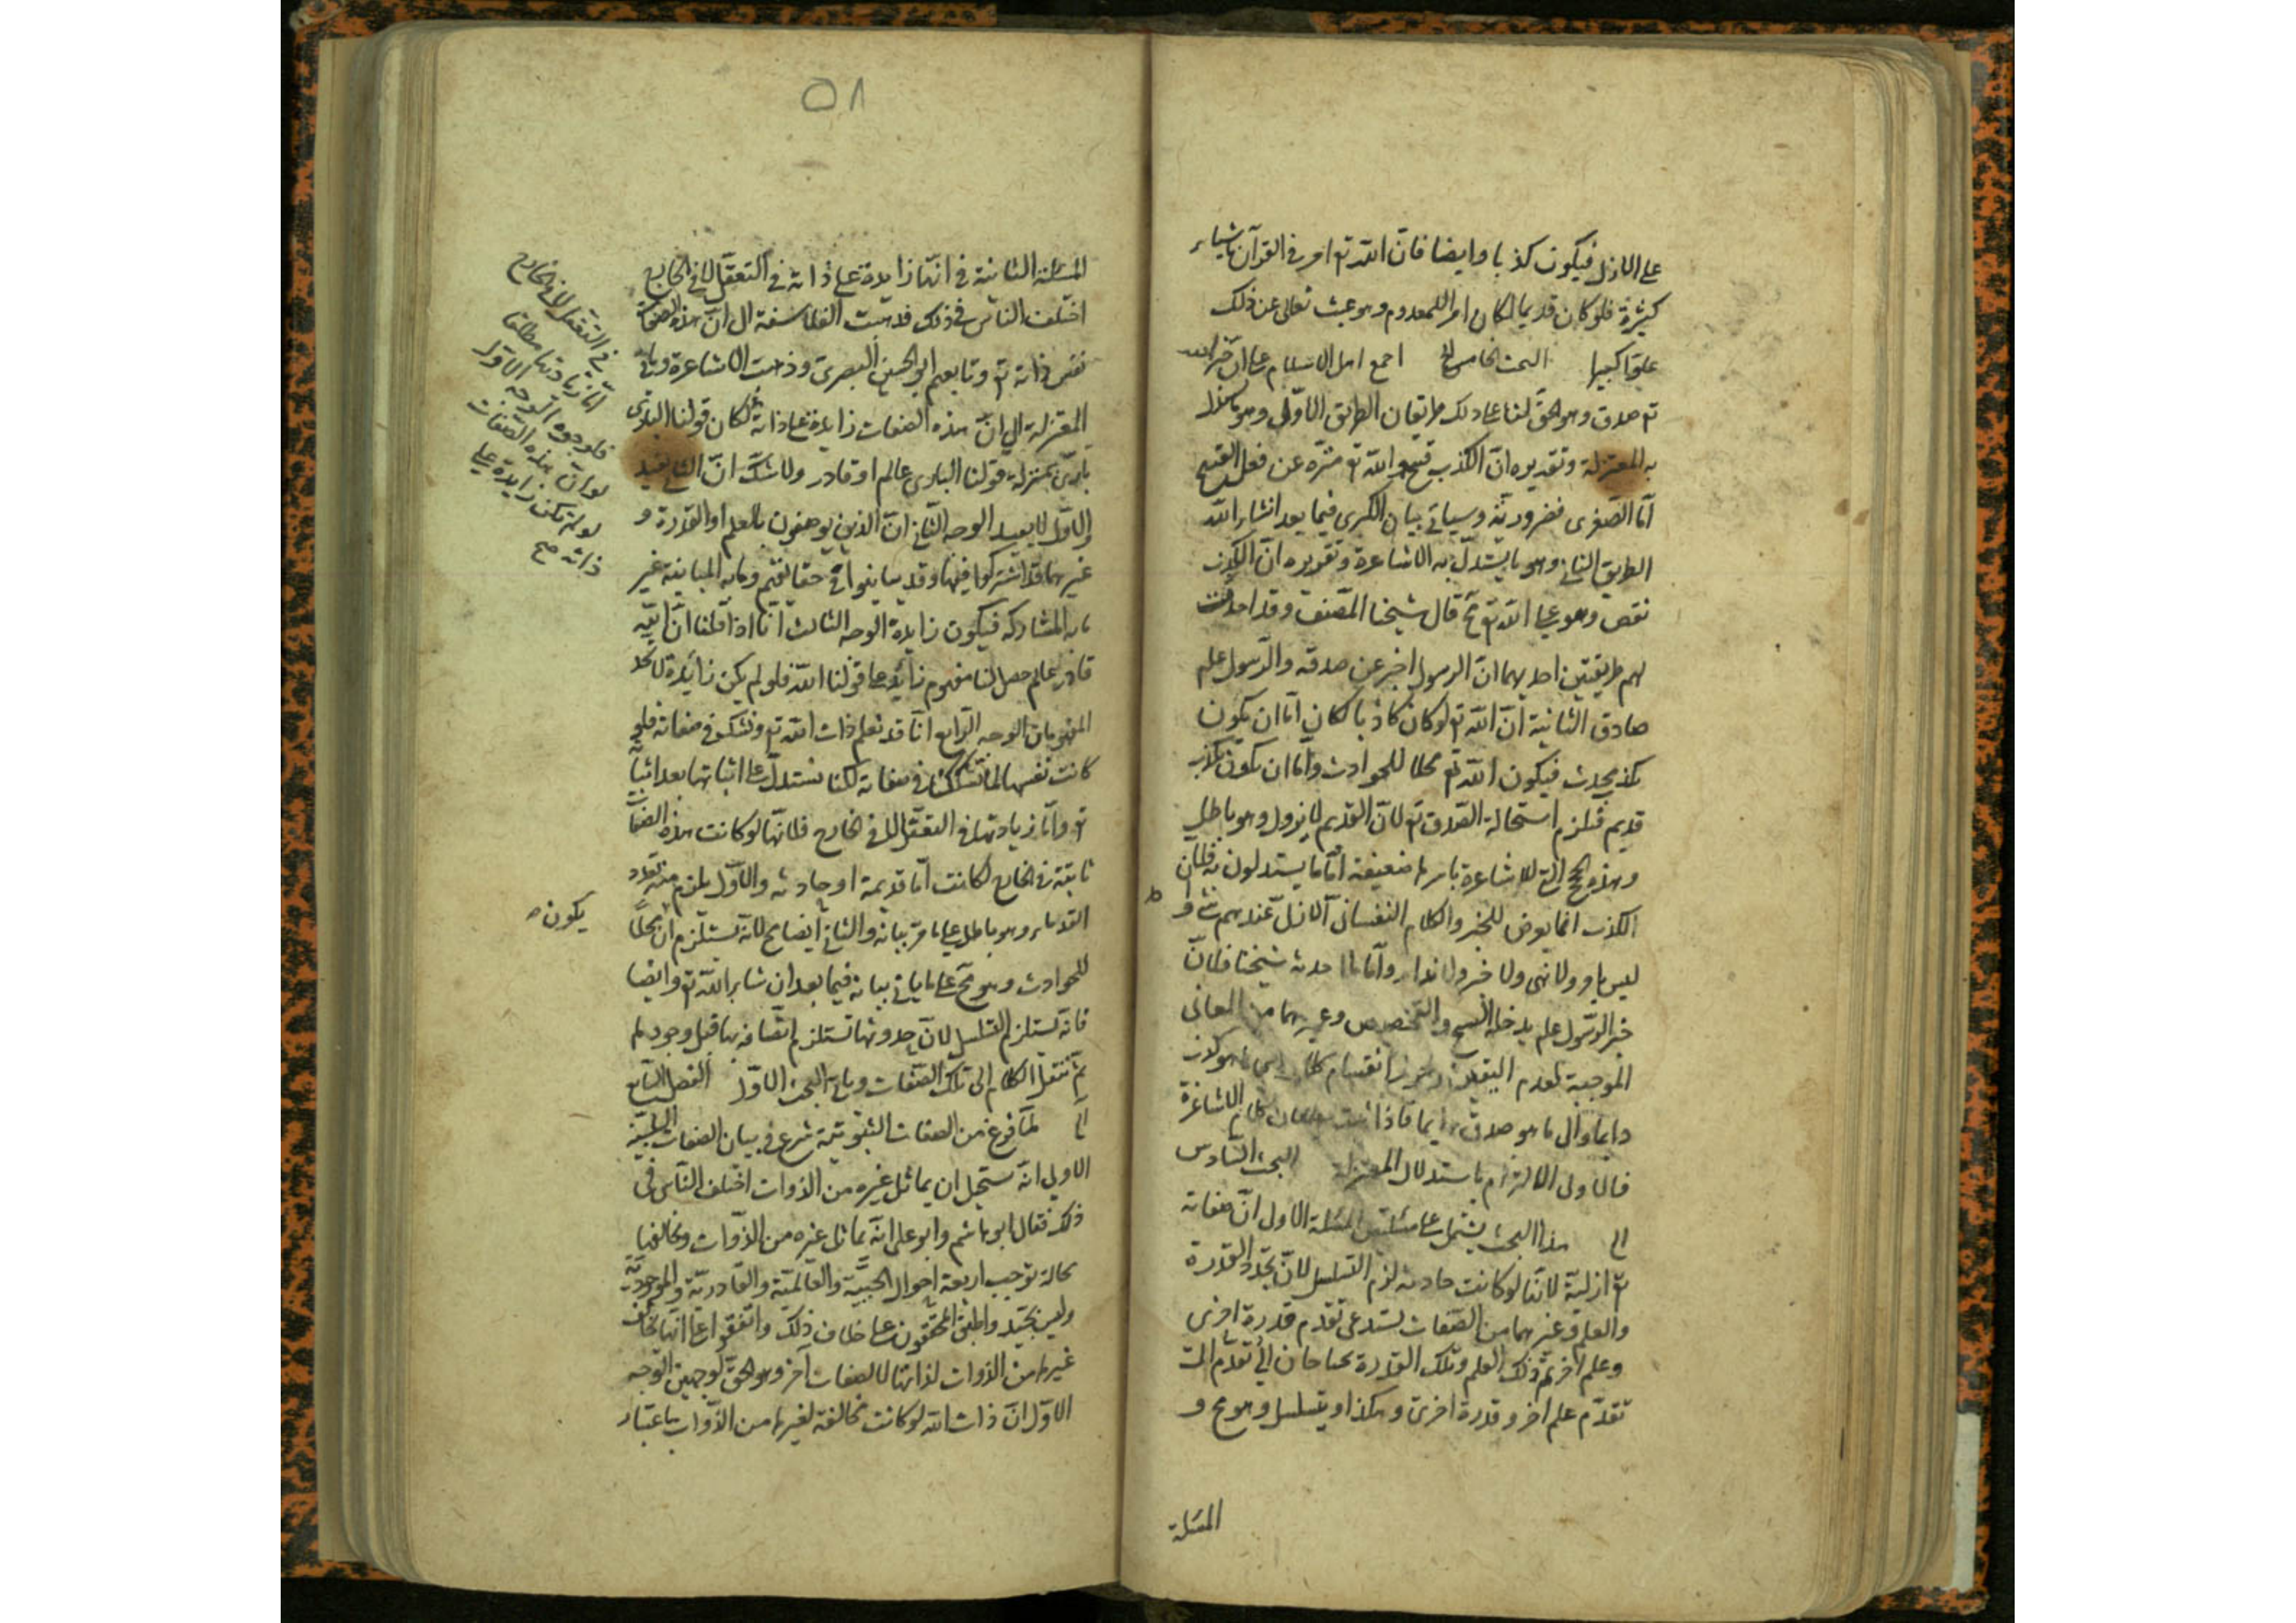 على الازل فيكون كذبا وايضا فان الله تع امر في القرآن باشياء
كثيرة فلو كان قديما لكان امرا للمعدوم وهو عبث تعالى عن ذلك
علوا كبيرا البحث الخامس الخ اجمع اهل الاسلام على ان خبر الله
تع صدق وهو الحق لنا على ذلك طريقان الطريق الاول وهو ما استدل
به المعتزلة وتقديره ان الكذب قبيح والله تع منزه عن فعل القبيح
اما الصغرى فضرورية وسياتي بيان الكبرى فيما بعد انشاء الله
الطريق الثاني وهو ما يستدل به الاشاعرة وتقديره ان الكذب
نقص وهو على الله تع مح قال شيخنا المصنف وقد احدثت
لهم طريقتين احديهما ان الرسول اخبر عن صدقه والرسول علم
صادق الثانية ان الله تع لو كان كاذبا لكان اما ان يكون
بكذب محدث فيكون الله تع محلا للحوادث واما ان يكون بكذب
قديم فيلزم استحالة الصدق تع لان القديم لا يزول وهو باطل
وهذه الحجج التي للاشاعرة باسرها ضعيفة اما ما يستدلون به فلان
الكذب انما يعرض للخبر والكلام النفساني الازلي عندهم شئ و
ليس بامر ولا نهي ولا خبر ولا نداء واما ما احدثه شيخنا فلان
خبر الرسول علم يدخله النسخ والتخصيص وغيرهما من المعاني
الموجبة لعدم اليقين انقسام كلام الى ما هو كذب
دايما والى ما هو صدق دايما فاذا كلام الاشاعرة
فالاولى الالتزام باستدلال المعتزلة البحث السادس
الخ هذا البحث يشتمل على مسئلتين المسئلة الاول ان صفاته
تع ازلية لانها لو كانت حادثة لزم التسلسل لان تجدد القدرة
والعلم وغيرهما من الصفات يستدعي تقدم قدرة اخرى
وعلم آخر ثم ذلك العلم وتلك القدرة يحتاجان الى تقدم
تقدم علم اخر وقدرة اخرى وهكذا ويتسلسل وهو مح و
المسئلة
٥٨
المسئلة الثانية في انها زايدة على ذاته في التعقل لا في الخارج
اختلف الناس في ذلك فذهبت الفلاسفة الى ان هذه الصفات
نفس ذاته تع وتابعهم ابو الحسين البصري وذهبت الاشاعرة وباقي
المعتزلة الى ان هذه الصفات زايدة على ذاته لكان قولنا الباري
باري بمنزلة قولنا الباري عالم او قادر ولا شك ان الثاني يفيد
والاول لا يفيد الوجه الثاني ان الذين يوصفون بالعلم والقدرة و
غيرهما قد اشتركوا فيها وقد تباينوا في حقائقهم وما به المباينة غير
ما به المشاركة فيكون زايدة الوجه الثالث انا اذا قلنا ان الله
قادر عالم حصل لنا مفهوم زائد على قولنا الله فلو لم يكن زايدة لاتحد
المفهومان الوجه الرابع انا قد نعلم ذات الله تع ونشك في صفاته فلو
كانت نفسها لما تشككنا في صفاته لكنا نستدل على اثباتها بعد اثباته
تع واما زيادتها في التعقل لا في الخارج فلانها لو كانت هذه الصفات
ثابتة في الخارج لكانت اما قديمة او حادثه والاول يلزم منه تعدد
القدماء وهو باطل على ما مر بيانه والثاني ايضا مح لانه يستلزم ان محلا
للحوادث وهو مح على ما ياتي بيانه فيما بعد ان شاء الله تع وايضا
فانه يستلزم التسلسل لان حدوثها تستلزم اتصافه بها قبل وجودها
ثم ننقل الكلام الى تلك الصفات وياتي البحث الاول الفصل السابع
الخ لما فرغ من الصفات الثبوتية شرع في بيان الصفات السلبية
الاولى انه يستحيل ان يماثل غيره من الذوات اختلف الناس في
ذلك فقال ابو هاشم وابو علي انه يماثل غيره من الذوات ويخالفها
بحالة توجب اربعة احوال الحيية والعالمية والقادرية والموجودية
وليس بجيد واطبق المحققون على خلاف ذلك واتفقوا على انها تخالف
غيرها من الذوات لذاتها لا لصفات آخر وهو الحق لوجهين الوجه
الاول ان ذات الله لو كانت مخالفة لغيرها من الذوات باعتبار
في التعقل لا في الخارج
اما زيادتها مطلقا
فلوجوه الوجه الاول
لو ان هذه الصفات
لو لم تكن زايدة على
ذاته صح
يكون